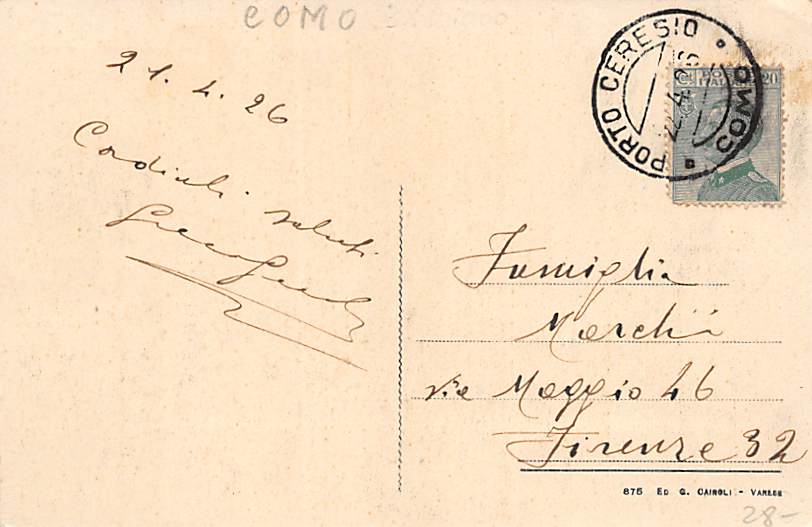 COMO
21.4.26
Cordiali saluti
PORTO CERESIO
COMO
C. 20
Famiglia
Marchi
via Maggio 46
Firenze 32
875 ED G. CAIROLI - VARESE
28-